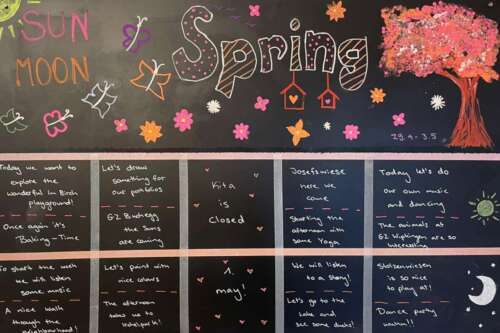 SUN
MOON
Spring
29.4 - 3.5
Today we want to
explore the
wonderful In Birch
playground!
Once again it's
Baking-Time
Let's draw
something for
our portfolios
G2 Buchegg
the Suns
are coming
Kita
is
closed
Josefswiese
here we
come
Starting the
afternoon with
some Yoga
Today let's do
our own music
and dancing
The animals at
G2 Wipkingen are so
Interesting
To start the week
we will listen
some music
A nice walk
through the
neighbourhood!
Let's paint with
nice colours
The afternoon
takes us to
1.
may!
We will listen
to a story!
Let's go to the
lake and
see some ducks!
is so
nice to
play at!
Dance party